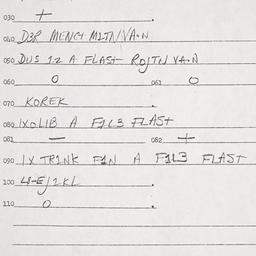 030 +
040 D3R MENCH MITN/VA·N
050 DUS 12 A FLASH ROJTN VA·N
060 O 061 O
070 KOREK
080 IXOLIB A F1L3 FLAST
081 — 082 +
090 IX TRINK F1N A F1L3 FLAST
100
110 O